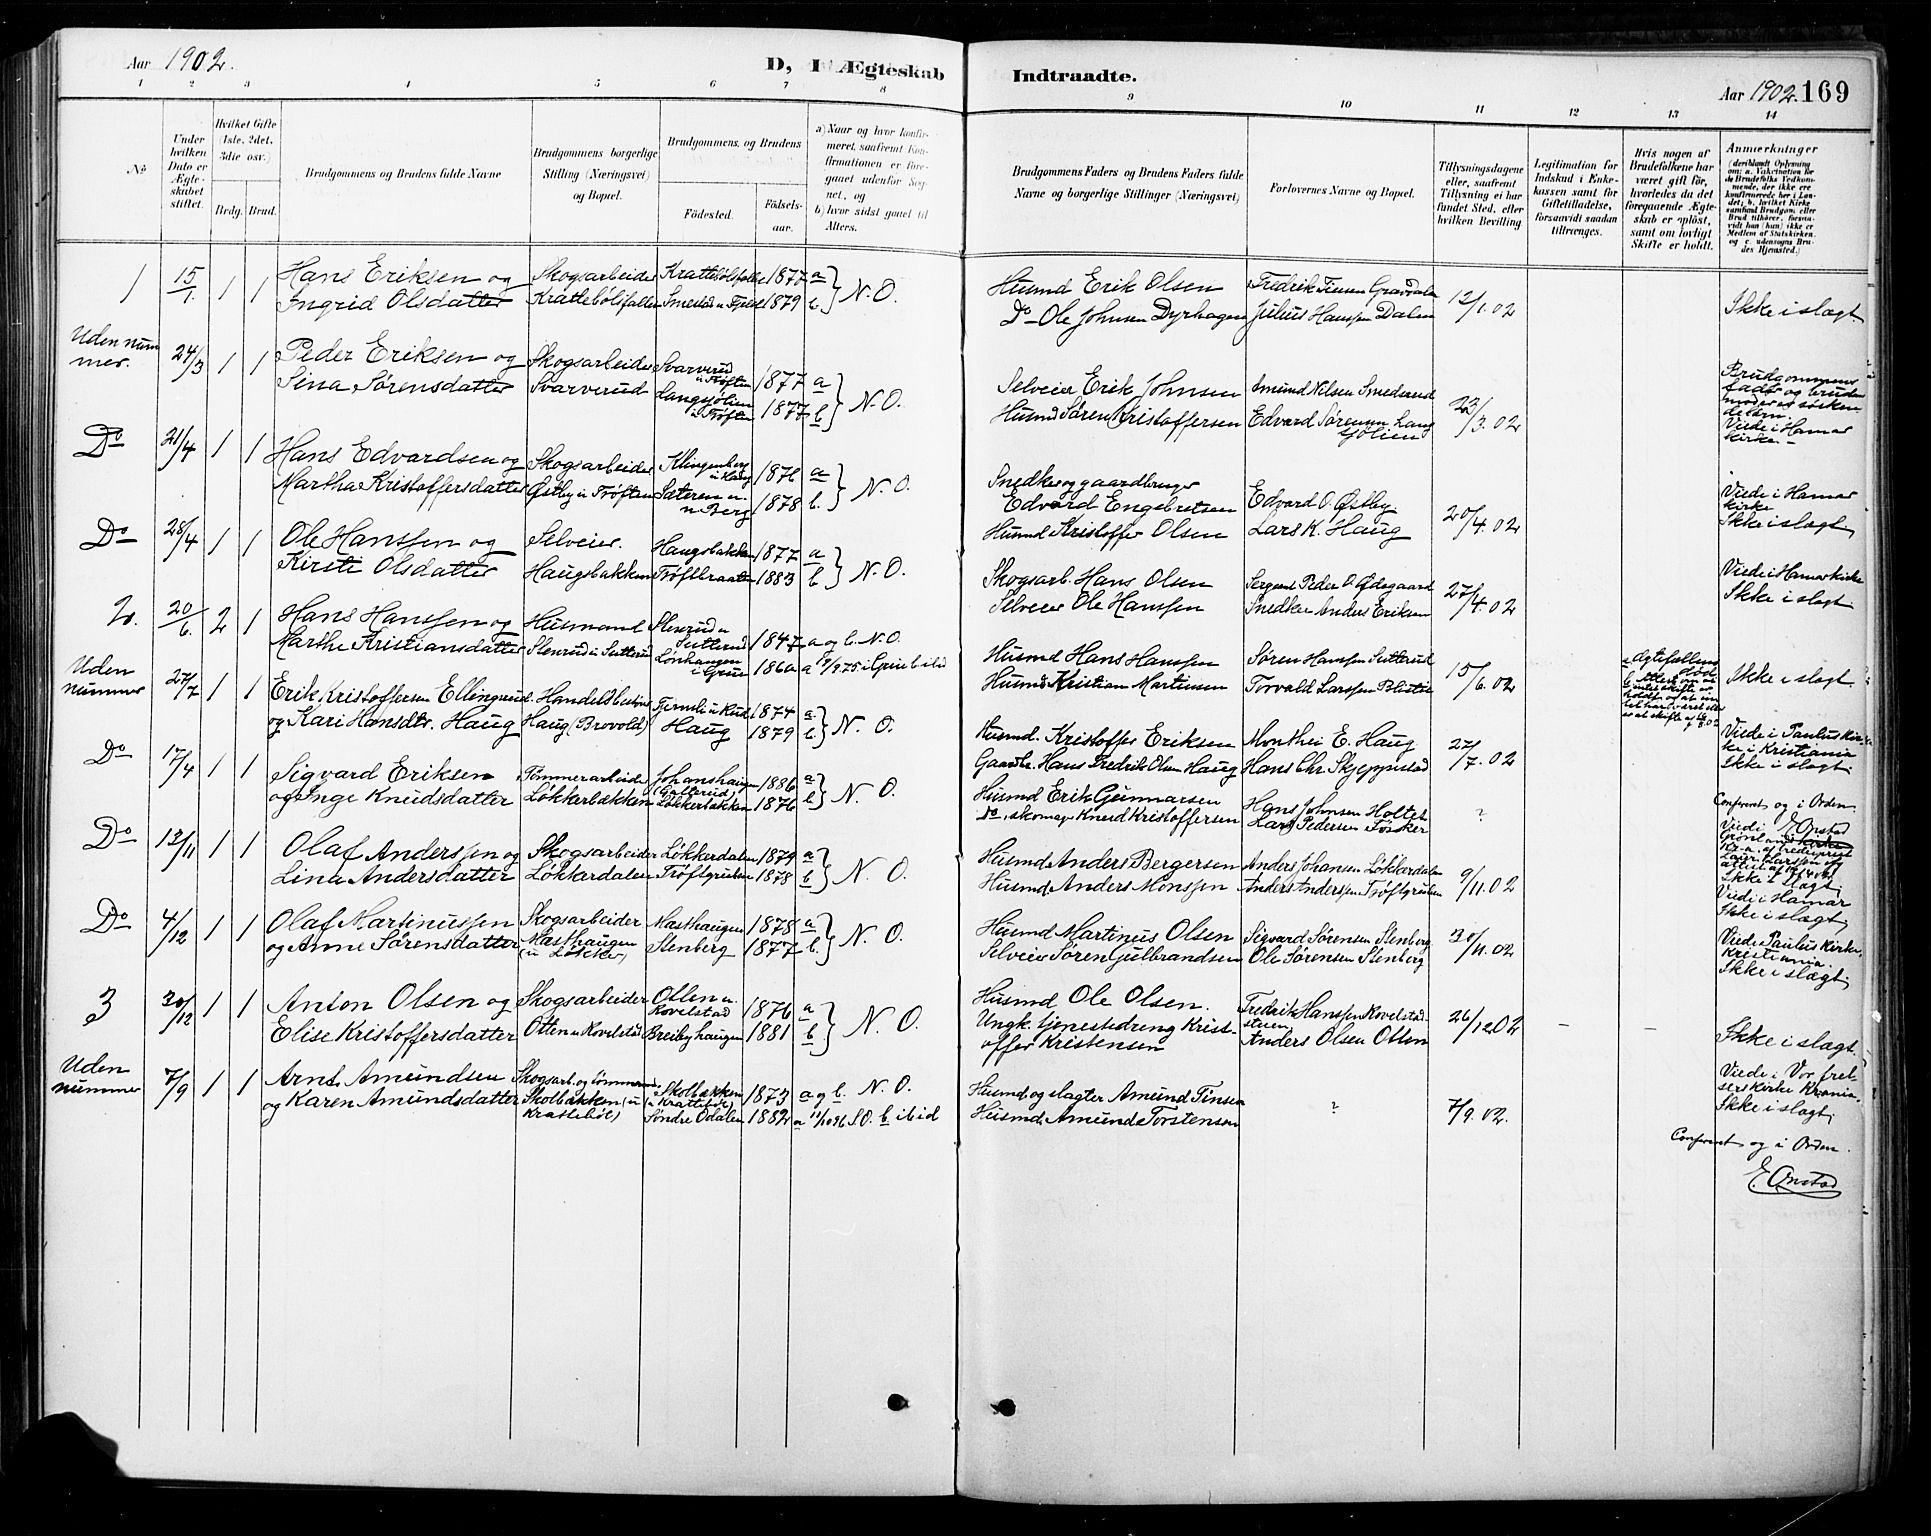 Aar 1902.
D, I Ægteskab
Indtraadte.
Aar 1902. 169
1 2 3 4 5 6 7 8 9 10 11 12 13 14
No
Under hvilken Dato er Ægteskabet stiftet.
Hvilket Gifte (1ste, 2det, 3die osv.)
Brdg. Brud.
Brudgommens og Brudens fulde Navne
Brudgommens borgerlige Stilling (Næringsvei) og Bopæl.
Brudgommens og Brudens
Fødested.
Fødselsaar.
a) Naar og hvor konfirmeret, saafremt Konfirmationen er foregaaet udenfor Sognet, og
b) hvor sidst gaaet til Alters.
Brudgommens Faders og Brudens Faders fulde Navne og borgerlige Stillinger (Næringsvei)
Forlovernes Navne og Bopæl.
Tillysningsdagene eller, saafremt Tillysning ei har fundet Sted, efter hvilken Bevilling
Legitimation for Indskud i Enkekassen samt for Giftetilladelse, forsaavidt saadan tiltrænges.
Hvis nogen af Brudefolkene har været gift før, hvorledes da det foregaaende Ægteskab er opløst, samt om lovligt Skifte er holdt.
Anmærkninger
1 15/1. 1 1 Hans Eriksen og Skogsarbeider 1877 a
Ingrid Olsdatter 1879 b N. O.
Husmd Erik Olsen
Do Ole Johnsen Dyrhagen Julius Hanssen Dalen 12/1.02
Ikke i slægt.
Uden nummer. 24/3 1 1 Peder Eriksen og Skogsarbeider Svarverud
Sina Sørensdatter Svarverud 1877 a
1877 b N. O.
Selveier Erik Johnsen Amund Nilsen Smederud
Husmd Søren Kristoffersen Edvard Sørensen 23/3.02
Brudgommens fader og brudens moder er søskendebørn.
Viede i Hamar kirke.
Do 21/4 1 1 Hans Edvardsen og Skogsarbeider Klingenberg u Haug 1876 a
Martha Kristoffersdatter Østby u Trøften Sæteren u. Berg 1878 b. N. O.
Snedker og gaardbruger
Edvard Engebretsen Edvard O. Østby
Husmd Kristoffer Olsen Lars K. Haug 20/4.02
Viede i Hamar kirke
Ikke i slægt
Do 28/4 1 1 Ole Hanssen og Selveier. Haugsbakken 1877 a
Kirsti Olsdatter Haugsbakken Trøftbraaten 1883 b N. O.
Skogsarb. Hans Olsen Sergent Peder O. Ødegaard
Selveier Ole Hanssen Snedker Anders Eriksen 27/4.02
Viede i Hamar kirke
Ikke i slægt
2. 20/6. 2 1 Hans Hanssen og Husmand Stenrud u Sutterud 1847 a og b. N. O.
Marthe Kristiansdatter Stenrud u Sutterud Lønhaugen i Grue 1860
Husmd Hans Hanssen Søren Hanssen Sutterud
Husmd Kristian Martinsen Torvald Larssen 15/6.02
Ikke i slægt
Uden nummer 27/7 1 1 Erik Kristoffersen Ellingsrud. 1874 a
og Kari Hansdtr. Haug Haug (Brovold) Haug 1879 b N. O.
Husmd. Kristoffer Eriksen E. Haug
Gaardbr. Hans Fredrik Olsen Haug Hans Chr. Skjeppestad 27/7.02
Viede i Paulus kirke i Kristiania
Ikke i slægt
Do 17/4 1 1 Sigvard Eriksen Tømmerarbeider Johanshaugen 1886 a
og Inge Knudsdatter Løkkerbakken Løkkerbakken 1876 b N. O.
Husmd Erik Gunnarsen Hans Johnsen Holtet
Do, skomager Knud Kristoffersen Lars Pedersen ?
Confereret og i Orden.
E. Onstad
Ikke i slægt
Do 12/11 1 1 Olaf Anderssen og Skogsarbeider Løkkerdalen 1879 a
Lina Andersdatter Løkkerdalen Trøftgruben 1878 b N. O.
Husmd Anders Bergersen Anders Johansen Løkkerdalen
Husmd Anders Monssen Anders Andersen Trøftgruben 9/11.02
Viede i Hamar
Ikke i slægt
Do 4/12 1 1 Olaf Martinussen Skogsarbeider Masthaugen 1878 a
og Anne Sørensdatter Masthaugen (u Løkker) Stenberg 1877 b. N. O.
Husmd Martinus Olsen Sigvard Sørensen Stenberg
Selveier Søren Gulbrandsen Ole Sørensen Stenberg 30/11.02
Viede Paulus kirke, Kristiania.
Ikke i slægt
3 30/12 1 1 Anton Olsen og Skogsarbeider Otten u. Kovelstad 1876 a
Elise Kristoffersdatter Otten u Kovelstad Breibyhaugen 1881 b N. O.
Husmd Ole Olsen. Fredrik Hanssen Kovelstadstuen
Ungk. tjenestedreng Kristoffer Kristensen Anders Olsen Otten 26/12 02 – –
Ikke i slægt.
Uden nummer 7/9 1 1 Arnt Amundsen Skogsarb. og Skolbakken u Krattebøl 1873 a og b. N. O.
og Karen Amundsdatter Skolbakken (u Krattebøl) Søndre Odalen 1882 a 11/10 96 S.O. b ibid
Husmd og slagter Amund Finsen
Husmd. Amund Torstensen ? 7/9.02.
Viede i Vor frelsers kirke Krania.
Ikke i slægt
Confereret og i Orden.
E. Onstad